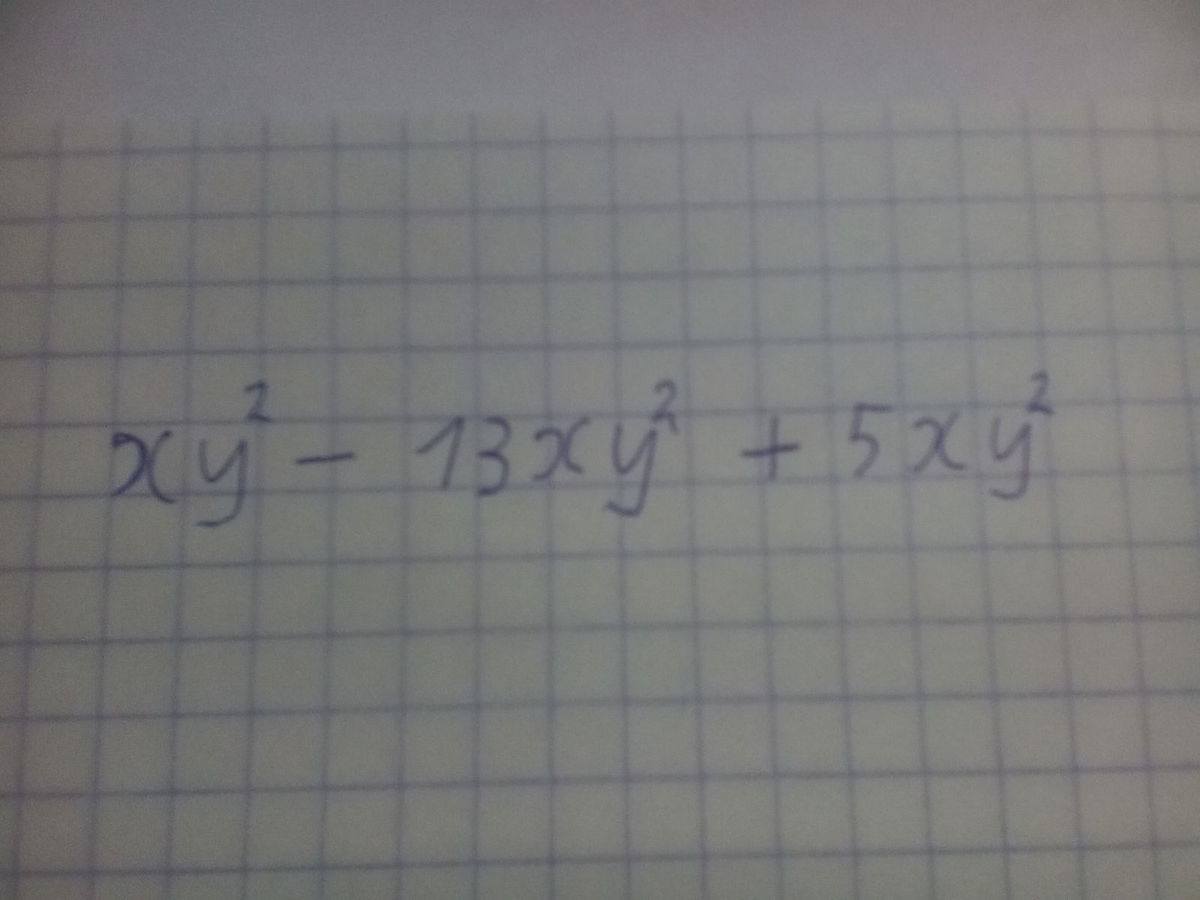 xy² - 13xy² + 5xy²